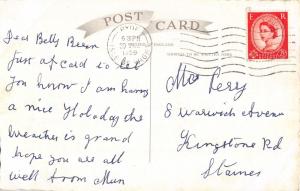 POST CARD
RYDE
6 30 PM
1959
ISLE OF WIGHT
E R
Dear Betty Brian
Just a p card to let
You know I am having
a nice Holoday the
weather is grand
hope you are all
well from Mum
Mrs Pery
8 Warwick Avenue
Kingstone Rd
Staines